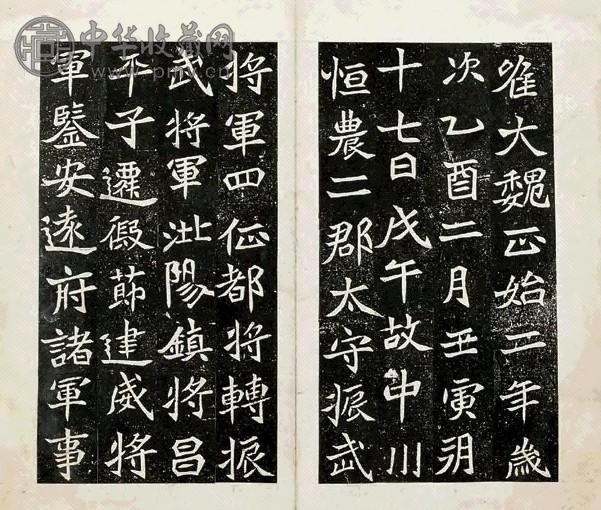 中华收藏网
唯大魏正始二年歲
次乙酉二月丑寅朔
十七日戊午故中川
恒農二郡太守振武
將軍四征都將轉振
武將軍沘陽鎮將昌
平子遷假節建威將
軍鑒安遠府諸軍事